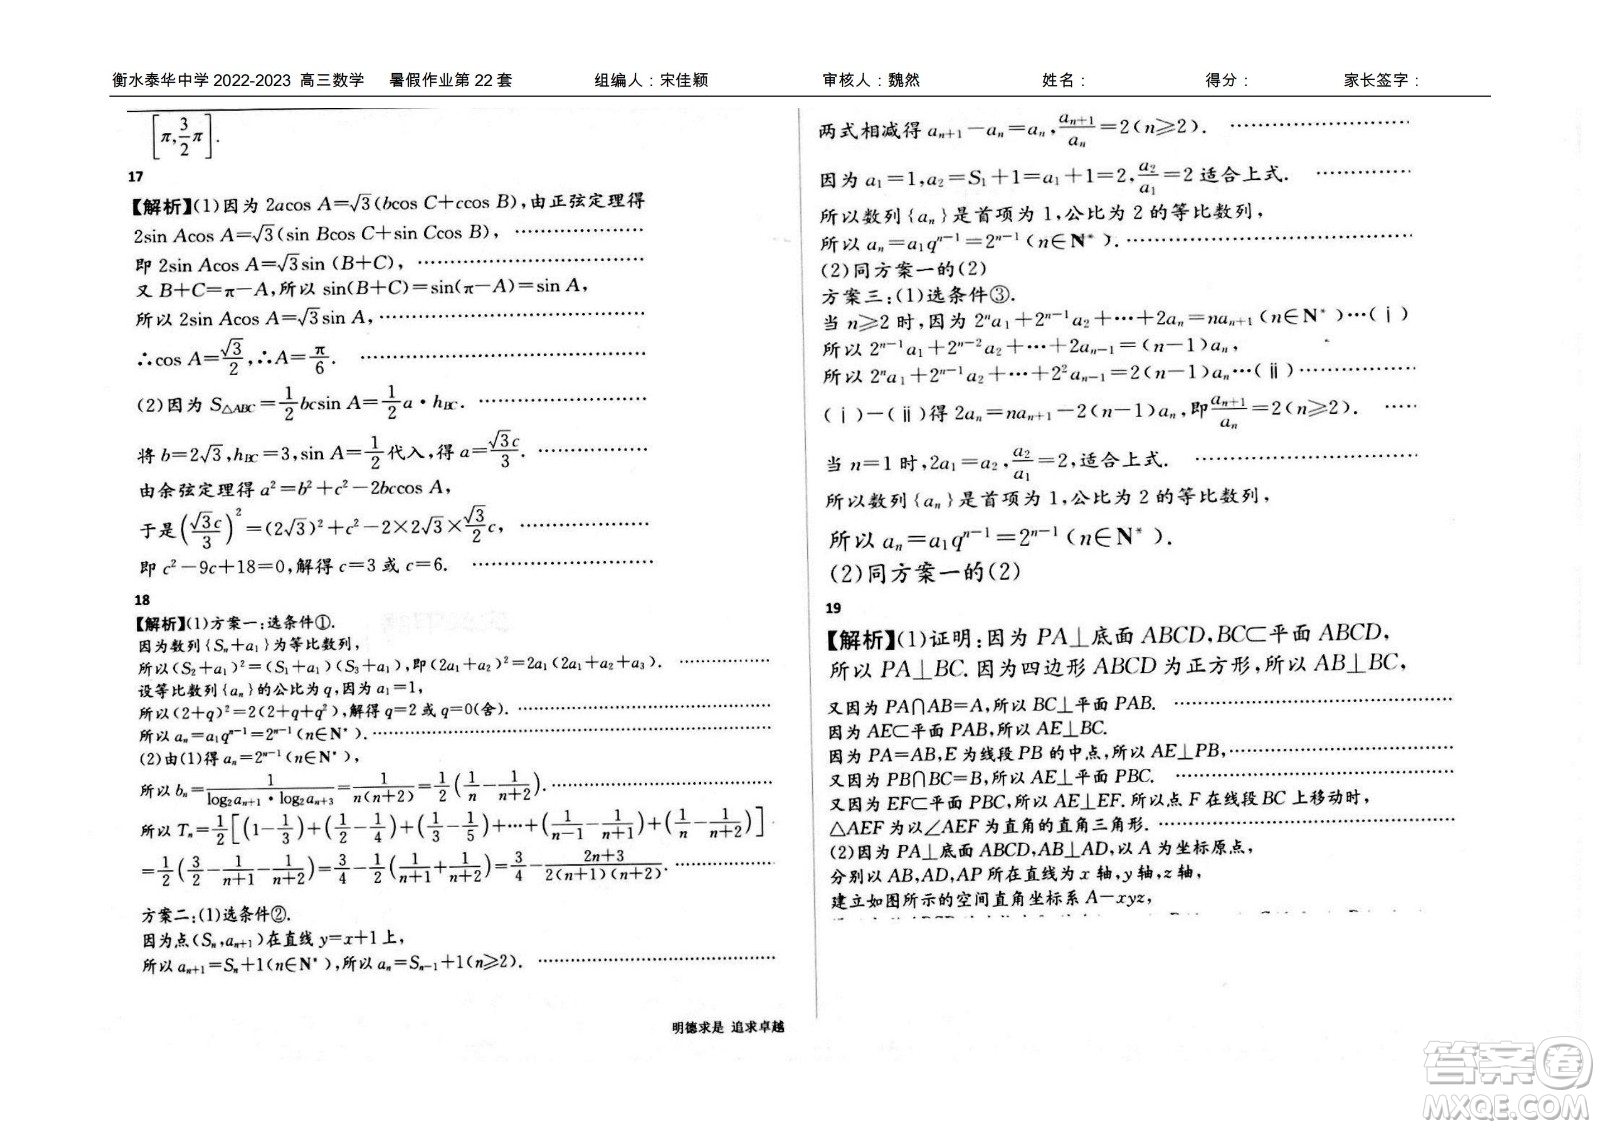 衡水泰华中学 2022-2023 高三数学 暑假作业第 22 套 组编人：宋佳颖 审核人：魏然 姓名： 得分： 家长签字：
[π,3/2π].
17
【解析】(1)因为 2acos A=√3(bcos C+ccos B),由正弦定理得
2sin Acos A=√3(sin Bcos C+sin Ccos B),
即 2sin Acos A=√3sin (B+C),
又 B+C=π-A,所以 sin(B+C)=sin(π-A)=sin A,
所以 2sin Acos A=√3sin A,
∴cos A=√3/2,∴A=π/6.
(2)因为 S△ABC=1/2bcsin A=1/2a·h_BC.
将 b=2√3,h_BC=3,sin A=1/2代入,得 a=√3c/3.
由余弦定理得 a²=b²+c²-2bccos A,
于是(√3c/3)²=(2√3)²+c²-2×2√3×√3/2c,
即 c²-9c+18=0,解得 c=3或 c=6.
18
【解析】(1)方案一:选条件①.
因为数列{Sₙ+a₁}为等比数列,
所以(S₂+a₁)²=(S₁+a₁)(S₃+a₁),即(2a₁+a₂)²=2a₁(2a₁+a₂+a₃).
设等比数列{aₙ}的公比为 q,因为 a₁=1,
所以(2+q)²=2(2+q+q²),解得 q=2 或 q=0(舍).
所以 aₙ=a₁qⁿ⁻¹=2ⁿ⁻¹(n∈N*).
(2)由(1)得 aₙ=2ⁿ⁻¹(n∈N*),
所以 bₙ=1/(log₂aₙ₊₁·log₂aₙ₊₃)=1/(n(n+2))=1/2(1/n-1/(n+2)).
所以 Tₙ=1/2[(1-1/3)+(1/2-1/4)+(1/3-1/5)+…+(1/(n-1)-1/(n+1))+(1/n-1/(n+2))]
=1/2(3/2-1/(n+1)-1/(n+2))=3/4-1/2(1/(n+1)+1/(n+2))=3/4-(2n+3)/(2(n+1)(n+2)).
方案二:(1)选条件②.
因为点(Sₙ,aₙ₊₁)在直线 y=x+1上,
所以 aₙ₊₁=Sₙ+1(n∈N*),所以 aₙ=Sₙ₋₁+1(n≥2).
两式相减得 aₙ₊₁-aₙ=aₙ,aₙ₊₁/aₙ=2(n≥2).
因为 a₁=1,a₂=S₁+1=a₁+1=2,a₂/a₁=2 适合上式.
所以数列{aₙ}是首项为 1,公比为 2 的等比数列,
所以 aₙ=a₁qⁿ⁻¹=2ⁿ⁻¹(n∈N*).
(2)同方案一的(2)
方案三:(1)选条件③.
当 n≥2 时,因为 2ⁿa₁+2ⁿ⁻¹a₂+…+2aₙ=naₙ₊₁(n∈N*)…(ⅰ)
所以 2ⁿ⁻¹a₁+2ⁿ⁻²a₂+…+2aₙ₋₁=(n-1)aₙ,
所以 2ⁿa₁+2ⁿ⁻¹a₂+…+2²aₙ₋₁=2(n-1)aₙ…(ⅱ)
(ⅰ)-(ⅱ)得 2aₙ=naₙ₊₁-2(n-1)aₙ,即aₙ₊₁/aₙ=2(n≥2).
当 n=1 时,2a₁=a₂,a₂/a₁=2,适合上式.
所以数列{aₙ}是首项为 1,公比为 2 的等比数列,
所以 aₙ=a₁qⁿ⁻¹=2ⁿ⁻¹(n∈N*).
(2)同方案一的(2)
19
【解析】(1)证明:因为 PA⊥底面 ABCD,BC⊂平面 ABCD,
所以 PA⊥BC.因为四边形 ABCD 为正方形,所以 AB⊥BC,
又因为 PA∩AB=A,所以 BC⊥平面 PAB.
因为 AE⊂平面 PAB,所以 AE⊥BC.
因为 PA=AB,E 为线段 PB 的中点,所以 AE⊥PB,
又因为 PB∩BC=B,所以 AE⊥平面 PBC.
又因为 EF⊂平面 PBC,所以 AE⊥EF.所以点 F 在线段 BC 上移动时,
△AEF 为以∠AEF 为直角的直角三角形.
(2)因为 PA⊥底面 ABCD,AB⊥AD,以 A 为坐标原点,
分别以 AB,AD,AP 所在直线为 x 轴,y 轴,z 轴,
建立如图所示的空间直角坐标系 A-xyz,
明德求是 追求卓越
答案圈
MXQE.COM